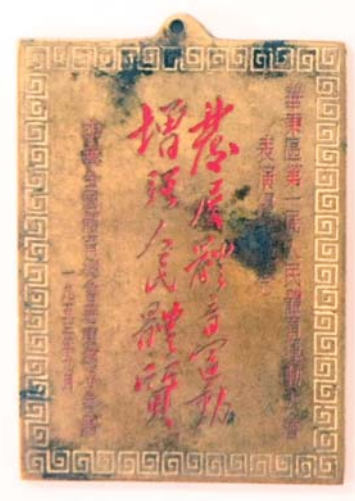 華東區第一屆人民體育運動大會
表演
發展體育運動
增强人民體質
中華全國體育總會
一九五三年 月